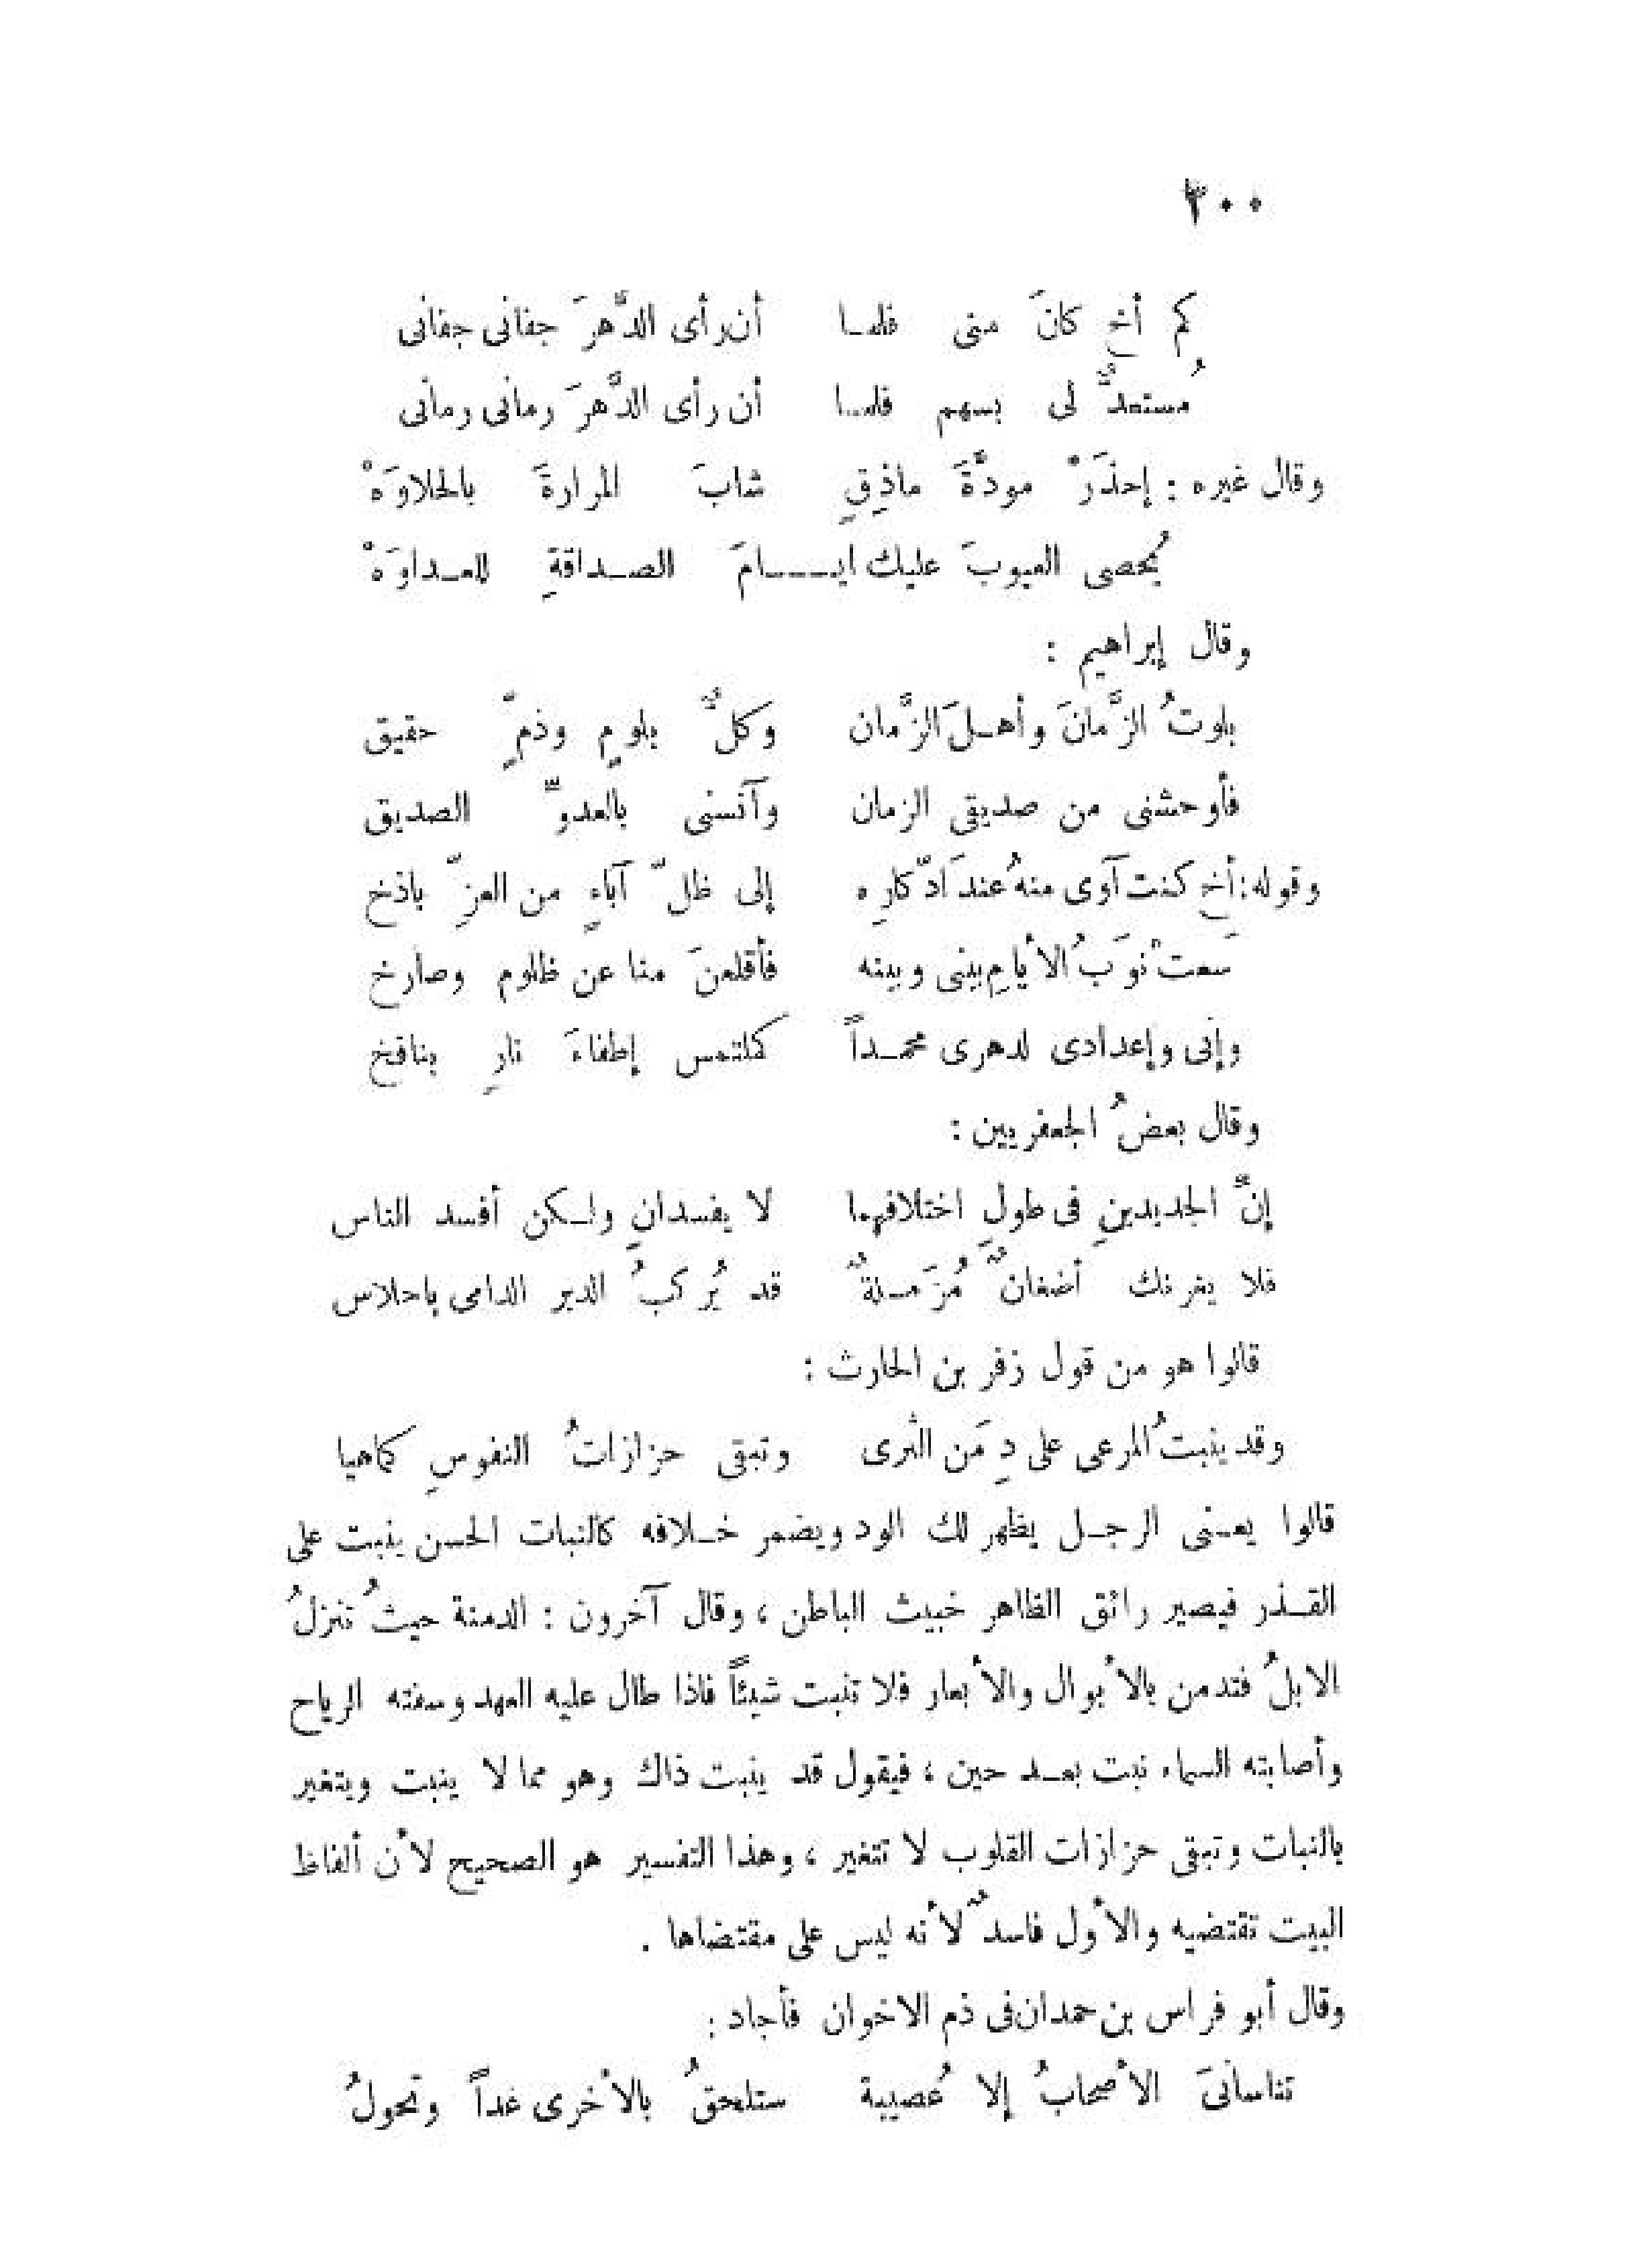 ٢٠٠
كم أخٍ كانَ منى فلمـا أن رأى الدَّهرَ جفانى جفانى
مُستعدٌّ لى بسهم فلمـا أن رأى الدَّهرَ رمانى رمانى
وقال غيره : إحذَرْ مودَّةَ ماذِقٍ شابَ المرارةَ بالحلاوَهْ
يُحصى العيوبَ عليك ايـــامَ الصـداقةِ للعـداوَهْ
وقال إبراهيم :
بلوتُ الزَّمانَ وأهـلَ الزَّمان وكلٌّ بلومٍ وذمٍّ حقيق
فأوحشنى من صديقى الزمان وآنسنى بالعدوِّ الصديق
وقوله : أخٍ كنت آوى منهُ عندَ ادّكارِه إلى ظلّ آباءٍ من العزِّ باذخ
سَعتْ نوَبُ الأيامِ بينى وبينه فأقلعنَ منا عن ظلوم وصارخ
وإنى وإعدادى لدهرى محمـداً كملتمس إطفاءَ نارٍ بنافخ
وقال بعضُ الجعفريين :
إنَّ الجديدينِ فى طولِ اختلافهما لا يفسدانِ ولـكن أفسد الناس
فلا يغرنك أضغانٌ مُزَمـنةٌ قد يُركبُ الدبر الدامى باحلاس
قالوا هو من قول زفر بن الحارث :
وقد ينبتُ المرعى على دِمَن الثرى وتبقى حزازاتُ النفوسِ كماهيا
قالوا يعـنى الرجـل يظهر لك الود ويضمر خـلافه كالنبات الحسن ينبت على
القـذر فيصير رائق الظاهر خبيث الباطن ، وقال آخرون : الدمنة حيثُ تنزلُ
الابلُ فتدمن بالأبوال والأبعار فلا تنبت شيئاً فاذا طال عليه العهد وسفته الرياح
وأصابته السماء نبت بعـد حين ، فيقول قد ينبت ذاك وهو مما لا ينبت ويتغير
بالنبات وتبقى حزازات القلوب لا تتغير ، وهذا التفسير هو الصحيح لأن ألفاظ
البيت تقتضيه والأول فاسدٌ لأنه ليس على مقتضاها .
وقال أبو فراس بن حمدان فى ذم الاخوان فأجاد :
تناسانىَ الأصحابُ إلا عُصيبة ستلحقُ بالأخرى غداً وتحولُ